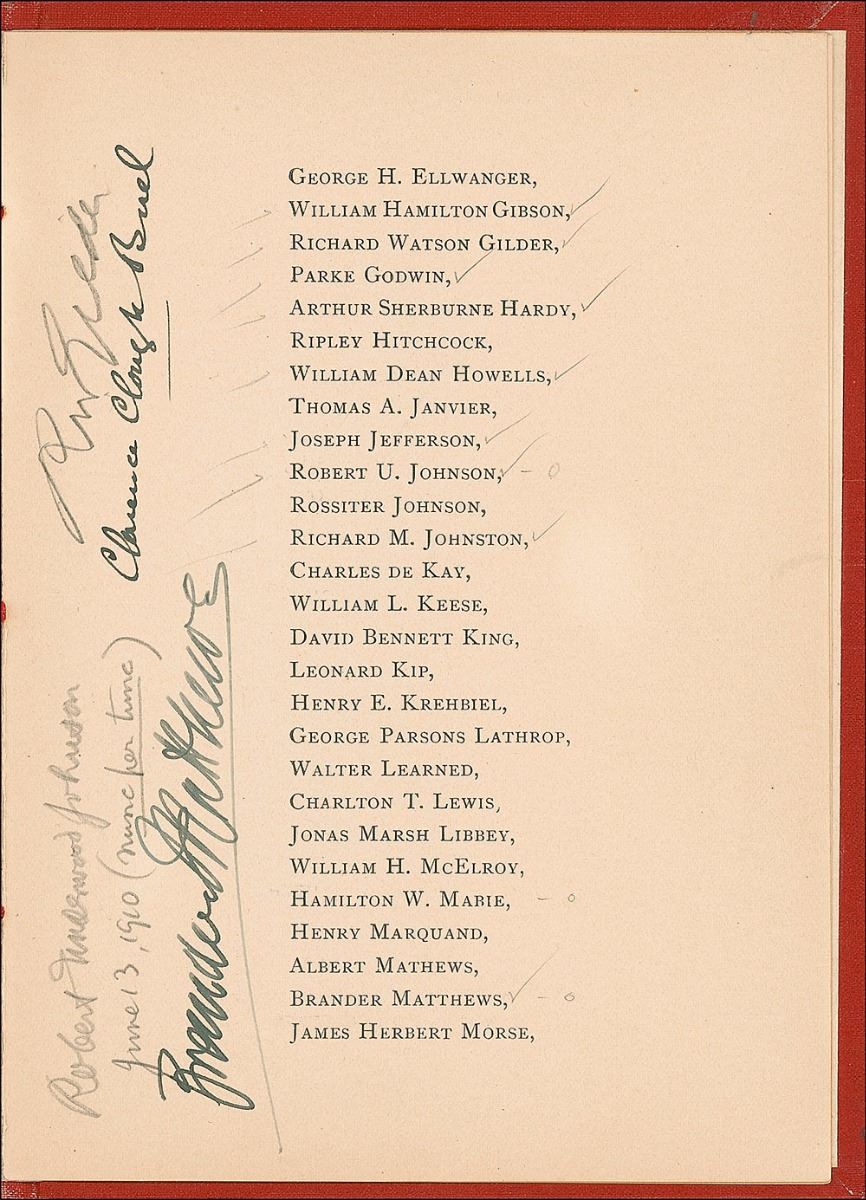 GEORGE H. ELLWANGER,
WILLIAM HAMILTON GIBSON,
RICHARD WATSON GILDER,
PARKE GODWIN,
ARTHUR SHERBURNE HARDY,
RIPLEY HITCHCOCK,
WILLIAM DEAN HOWELLS,
THOMAS A. JANVIER,
JOSEPH JEFFERSON,
ROBERT U. JOHNSON,
ROSSITER JOHNSON,
RICHARD M. JOHNSTON,
CHARLES DE KAY,
WILLIAM L. KEESE,
DAVID BENNETT KING,
LEONARD KIP,
HENRY E. KREHBIEL,
GEORGE PARSONS LATHROP,
WALTER LEARNED,
CHARLTON T. LEWIS,
JONAS MARSH LIBBEY,
WILLIAM H. MCELROY,
HAMILTON W. MABIE,
HENRY MARQUAND,
ALBERT MATHEWS,
BRANDER MATTHEWS,
JAMES HERBERT MORSE,
R W Gilder
Clarence Clough Buel
Robert Underwood Johnson
June 13, 1910 (nunc per tunc)
Brander Matthews